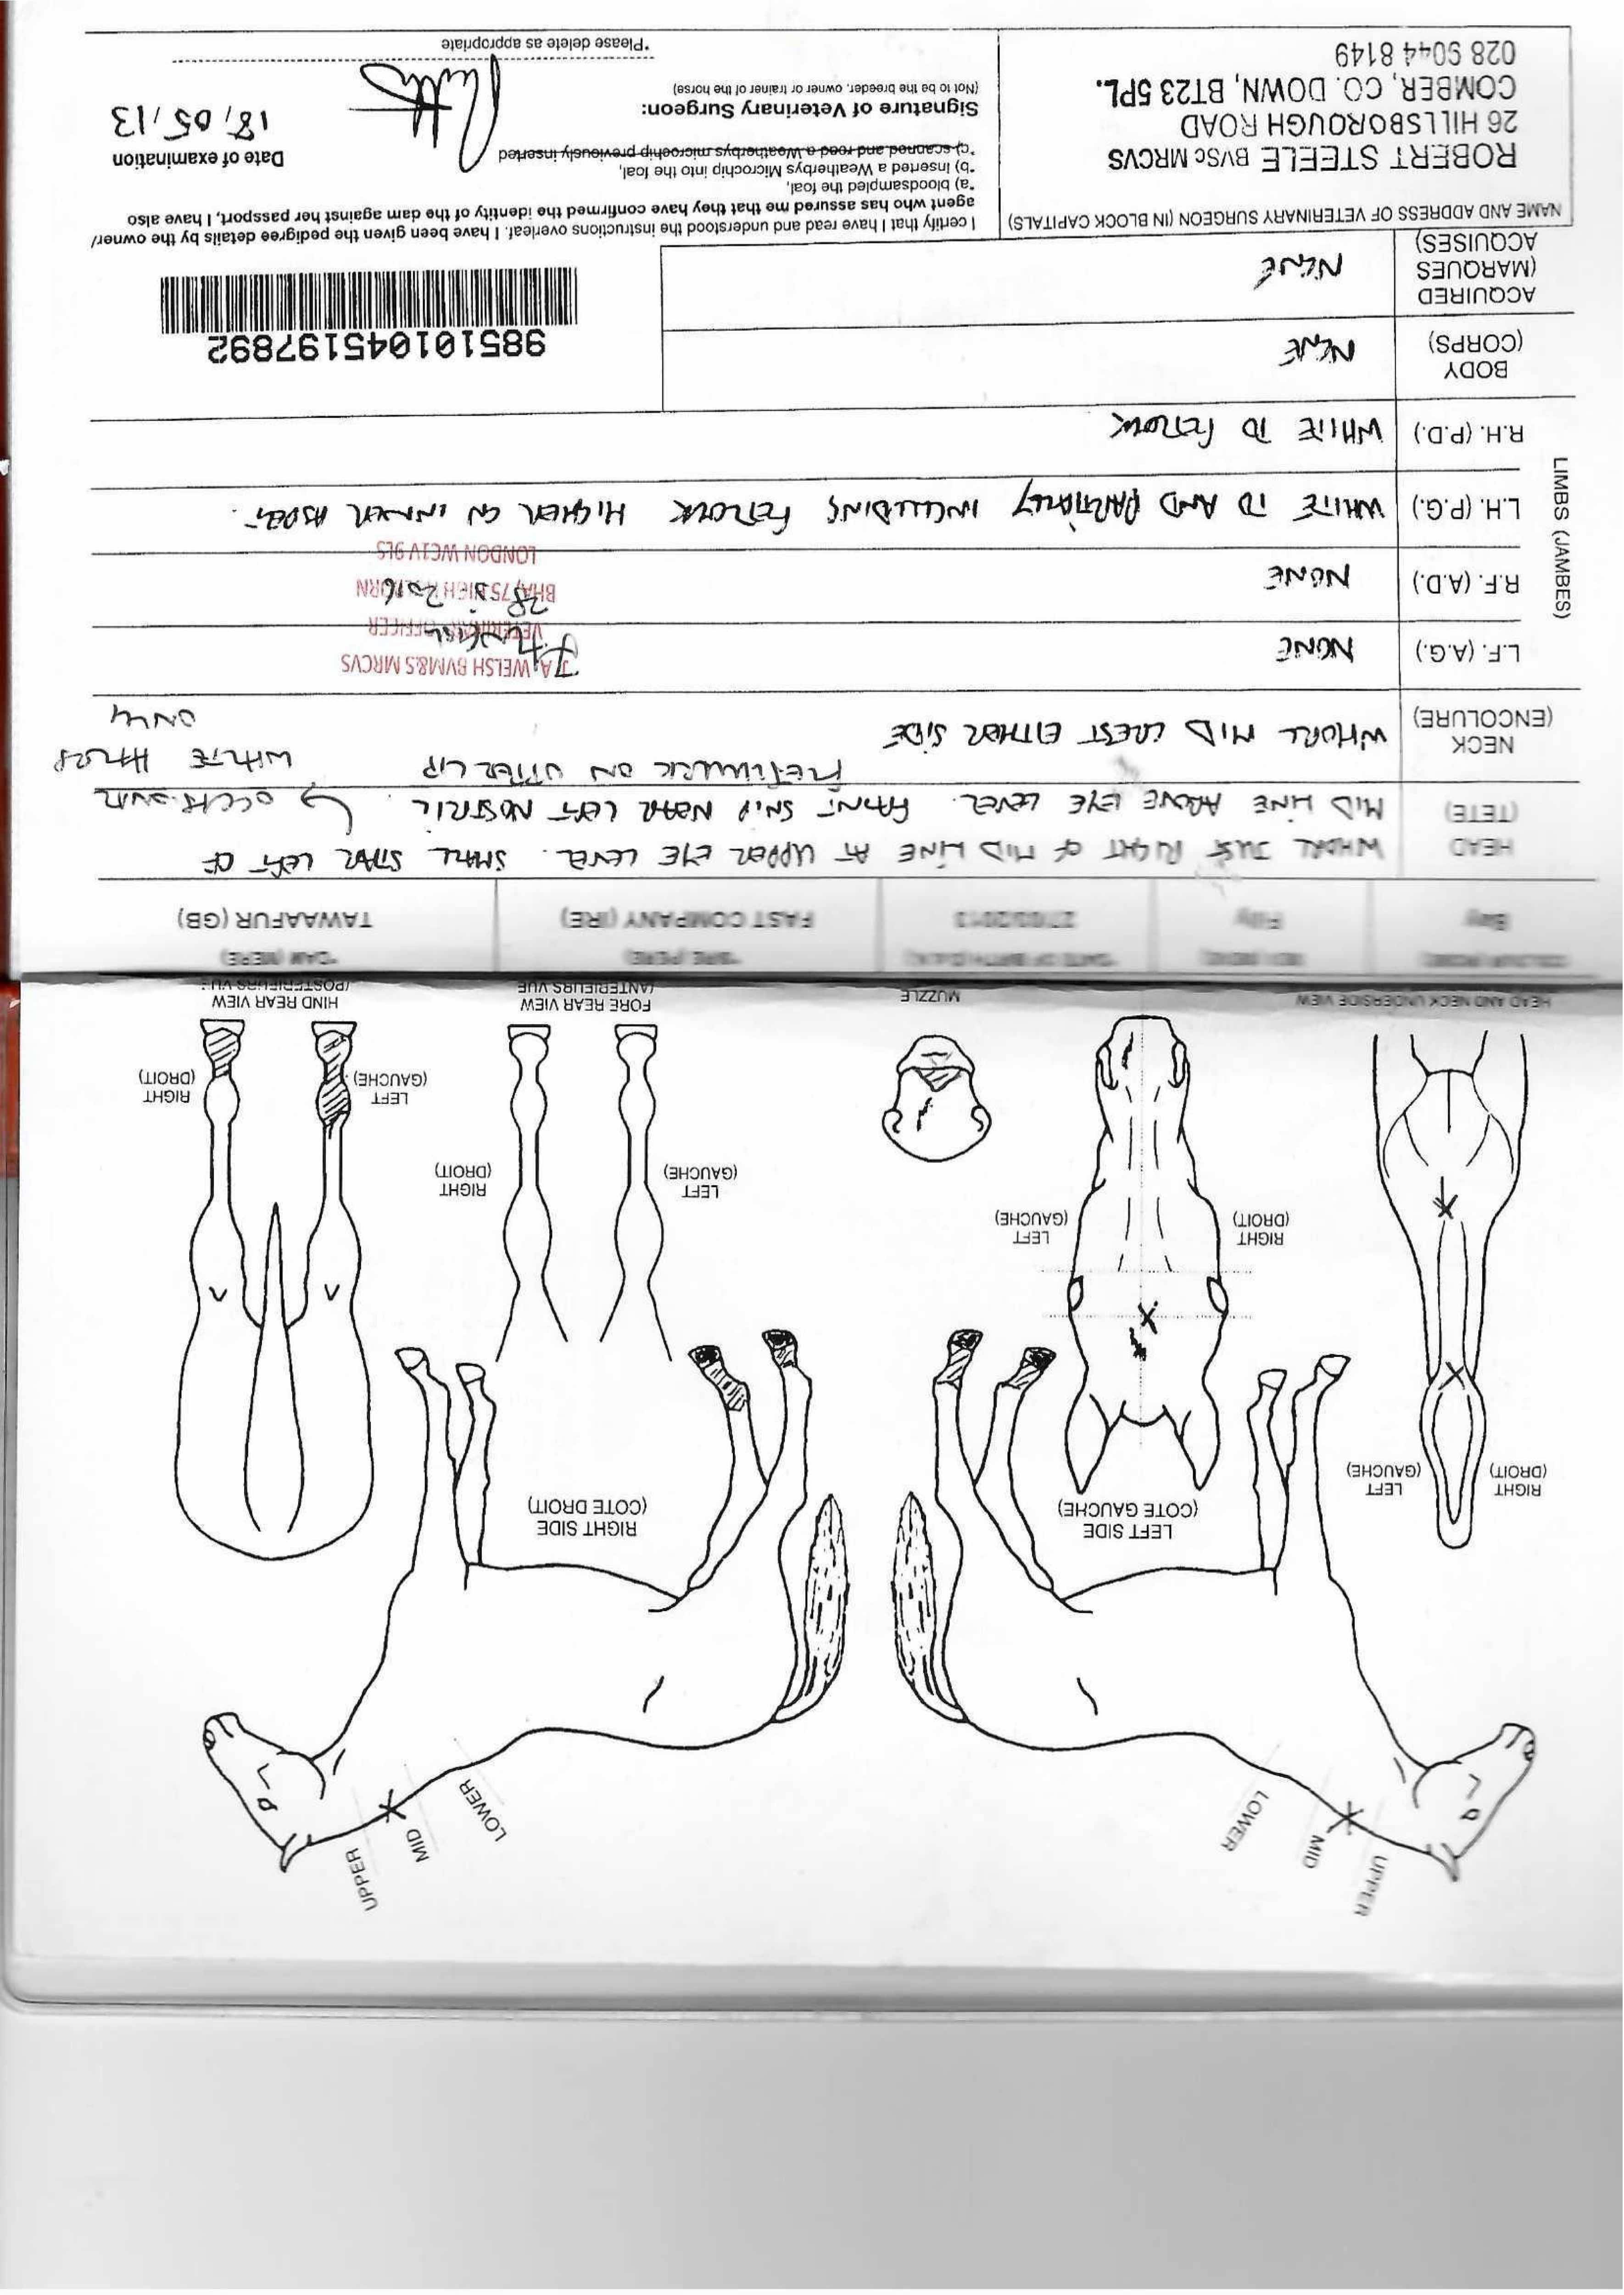 UPPER
MID
LOWER
LOWER
MID
UPPER
RIGHT
(DROIT)
LEFT
(GAUCHE)
LEFT SIDE
(COTE GAUCHE)
RIGHT SIDE
(COTE DROIT)
RIGHT
(DROIT)
LEFT
(GAUCHE)
LEFT
(GAUCHE)
RIGHT
(DROIT)
LEFT
(GAUCHE)
RIGHT
(DROIT)
HEAD AND NECK UNDERSIDE VIEW
MUZZLE
FORE REAR VIEW
(ANTERIEURS VUE
HIND REAR VIEW
(POSTERIEURS VU
COLOUR (ROBE)
*DATE OF BIRTH (D.N.)
*SIRE (PERE)
*DAM (MERE)
Bay
Filly
27/03/2013
FAST COMPANY (IRE)
TAWAAFUR (GB)
HEAD
(TETE)
WHORL JUST RIGHT OF MID LINE AT UPPER EYE LEVEL. SMALL STAR LEFT OF
MID LINE ABOVE EYE LEVEL. FAINT SNIP NEAR LEFT NOSTRIL.
OCCASIONAL
WHITE HAIRS
ONLY
FLESHMARK ON UPPER LIP
NECK
(ENCOLURE)
WHORL MID CREST EITHER SIDE
LIMBS (JAMBES)
L.F. (A.G.)
NONE
J A WELSH BVM&S MRCVS
VETERINARY OFFICER
R.F. (A.D.)
NONE
BHA, 75 HIGH HOLBORN
LONDON WC1V 6LS
2016
L.H. (P.G.)
WHITE TO AND PARTIALLY INCLUDING FETLOCK HIGHER ON INNER ASPECT.
R.H. (P.D.)
WHITE TO FETLOCK
BODY
(CORPS)
NONE
985101045197892
ACQUIRED
(MARQUES
ACQUISES)
NONE
NAME AND ADDRESS OF VETERINARY SURGEON (IN BLOCK CAPITALS)
ROBERT STEELE BVSc MRCVS
26 HILLSBOROUGH ROAD
COMBER, CO. DOWN, BT23 5PL.
028 9044 8149
I certify that I have read and understood the instructions overleaf. I have been given the pedigree details by the owner/
agent who has assured me that they have confirmed the identity of the dam against her passport, I have also
*a) bloodsampled the foal,
*b) inserted a Weatherbys Microchip into the foal,
*c) scanned and read a Weatherbys microchip previously inserted
Signature of Veterinary Surgeon:
(Not to be the breeder, owner or trainer of the horse)
Date of examination
18,05,13
*Please delete as appropriate